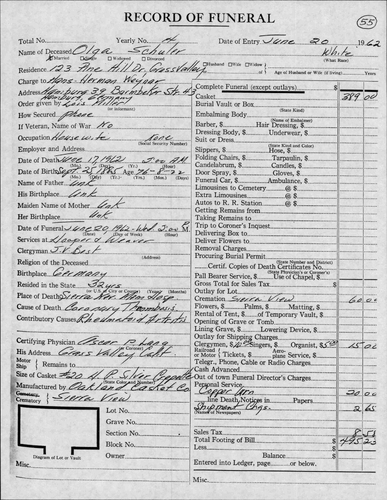 RECORD OF FUNERAL
55
Total No. Yearly No. Date of Entry June 20 1962
Name of Deceased Olga Schuler White
Married Single Widowed Divorced (What Race)
Residence 123 Pine Hill Dr. Grass Valley Husband Wife Widow
Charge to Hans Herman Age of Husband or Wife (if living)
Address Hamburg 39 St 43
Hamburg Germany
Order given by Lois Miller
How Secured phone
If Veteran, Name of War No
Occupation Housewife None
(Social Security Number)
Employer and Address
Date of Death June 17, 1962 A.M.
Date of Birth Sept. 25, 1885 Age 76-8-22
Name of Father Unk
His Birthplace Unk
Maiden Name of Mother Unk
Her Birthplace Unk
Date of Funeral June 20, 1962 Wed.
Services at Hooper & Weaver
Clergyman
Religion of the Deceased
Birthplace Germany
Resided in the State
Place of Death Sierra Nev. Mem. Hosp
Cause of Death Coronary Thrombosis
Contributory Causes Rheumatoid Arthritis
Certifying Physician Oscar
His Address Grass Valley Calif
Remains to
Size of Casket
Manufactured by Oakland Casket Co
Cemetery Sierra View
Lot No.
Grave No.
Section No.
Block No.
Owner
Diagram of Lot or Vault
Misc.
Complete Funeral (except outlays) 399 00
Casket
Burial Vault or Box
(State Kind)
Embalming Body
Barber, Hair Dressing,
Dressing Body, Underwear,
Suit or Dress
(State Kind and Color)
Slippers, Hose
Folding Chairs, Tarpaulin,
Candelabrum, Candles,
Door Spray, Gloves,
Funeral Car, Ambulance,
Limousines to Cemetery @ $
Extra Limousines @ $
Autos to R. R. Station @ $
Getting Remains from
Taking Remains to
Trip to Coroner's Inquest
Delivering Box to
Deliver Flowers to
Removal Charges
Procuring Burial Permit
Certif. Copies of Death Certificates
Pall Bearer Service, Use of Chapel,
Gross Total for Sales Tax
Outlay for Lot
Cremation Sierra View 60 00
Flowers, Palms, Matting,
Rental of Tent, of Temporary Vault,
Opening of Grave or Tomb
Lining Grave, Lowering Device,
Outlay for Shipping Charges
Clergyman, Singers, Organist, 15 00
Railroad or Motor Tickets, Aeroplane Service,
Telegr., Phone, Cable or Radio Charges
Cash Advanced
Out of town Funeral Director's Charges
Personal Service
Copper Urn 20 00
line Death Notices in Papers
Shipment Chgs. 2 65
(Names of Newspapers)
Sales Tax 8 51
Total Footing of Bill
Less
Balance
Entered into Ledger, page or below.
Misc.